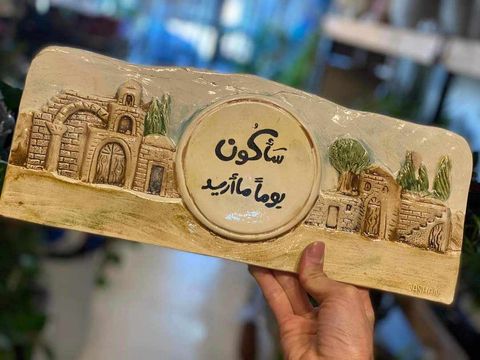 سَأكُون
يوماً ما أريد